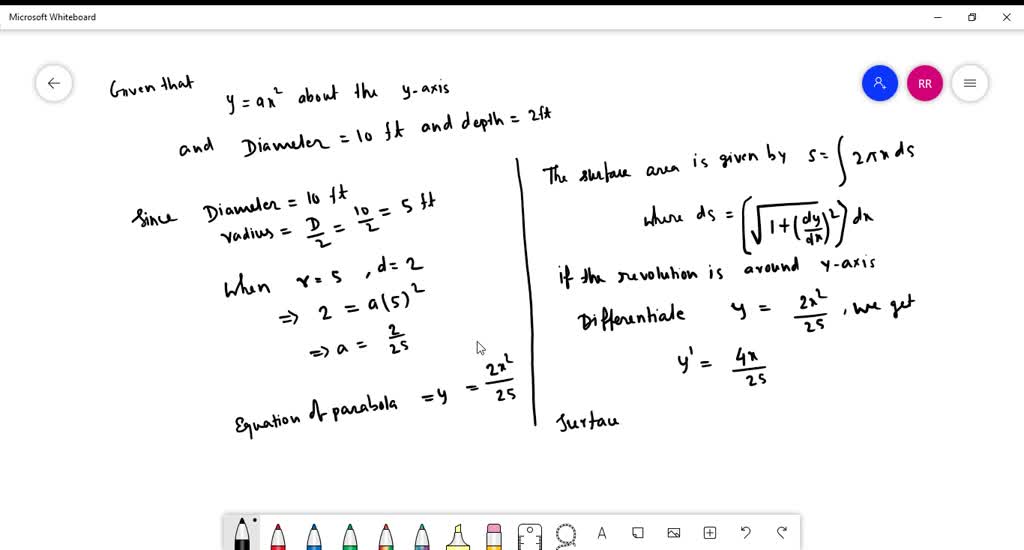 Microsoft Whiteboard
RR
Given that
y = ax² about the y-axis
and Diameter = 10 ft and depth = 2ft
Since Diameter = 10 ft
radius = D/2 = 10/2 = 5 ft
when r = 5, d = 2
⇒ 2 = a(5)²
⇒ a = 2/25
Equation of parabola = y = 2x²/25
The surface area is given by s = ∫ 2πx ds
where ds = (√(1+(dy/dx)²)) dx
if the revolution is around y-axis
Differentiate y = 2x²/25, we get
y' = 4x/25
Surfac
A